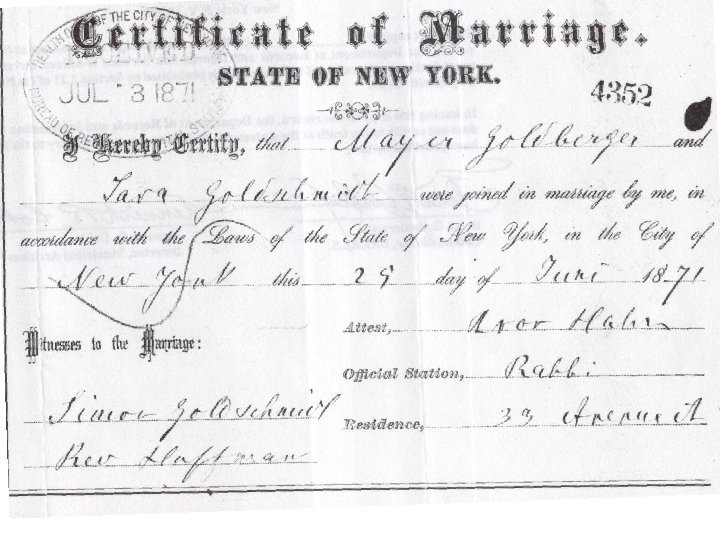 Certificate of Marriage.
STATE OF NEW YORK.
HEALTH OF THE CITY OF
RECEIVED
JUL 3 1871
BUREAU OF
4352
I Hereby Certify, that Mayer Goldberger and
Sara Goldschmidt were joined in marriage by me, in
accordance with the Laws of the State of New York, in the City of
New York this 29 day of Juni 1871
Attest, Hahn
Witnesses to the Marriage:
Official Station, Rabbi
Simon Goldschmidt
Residence, 33 Avenue A
Rev Hoffman